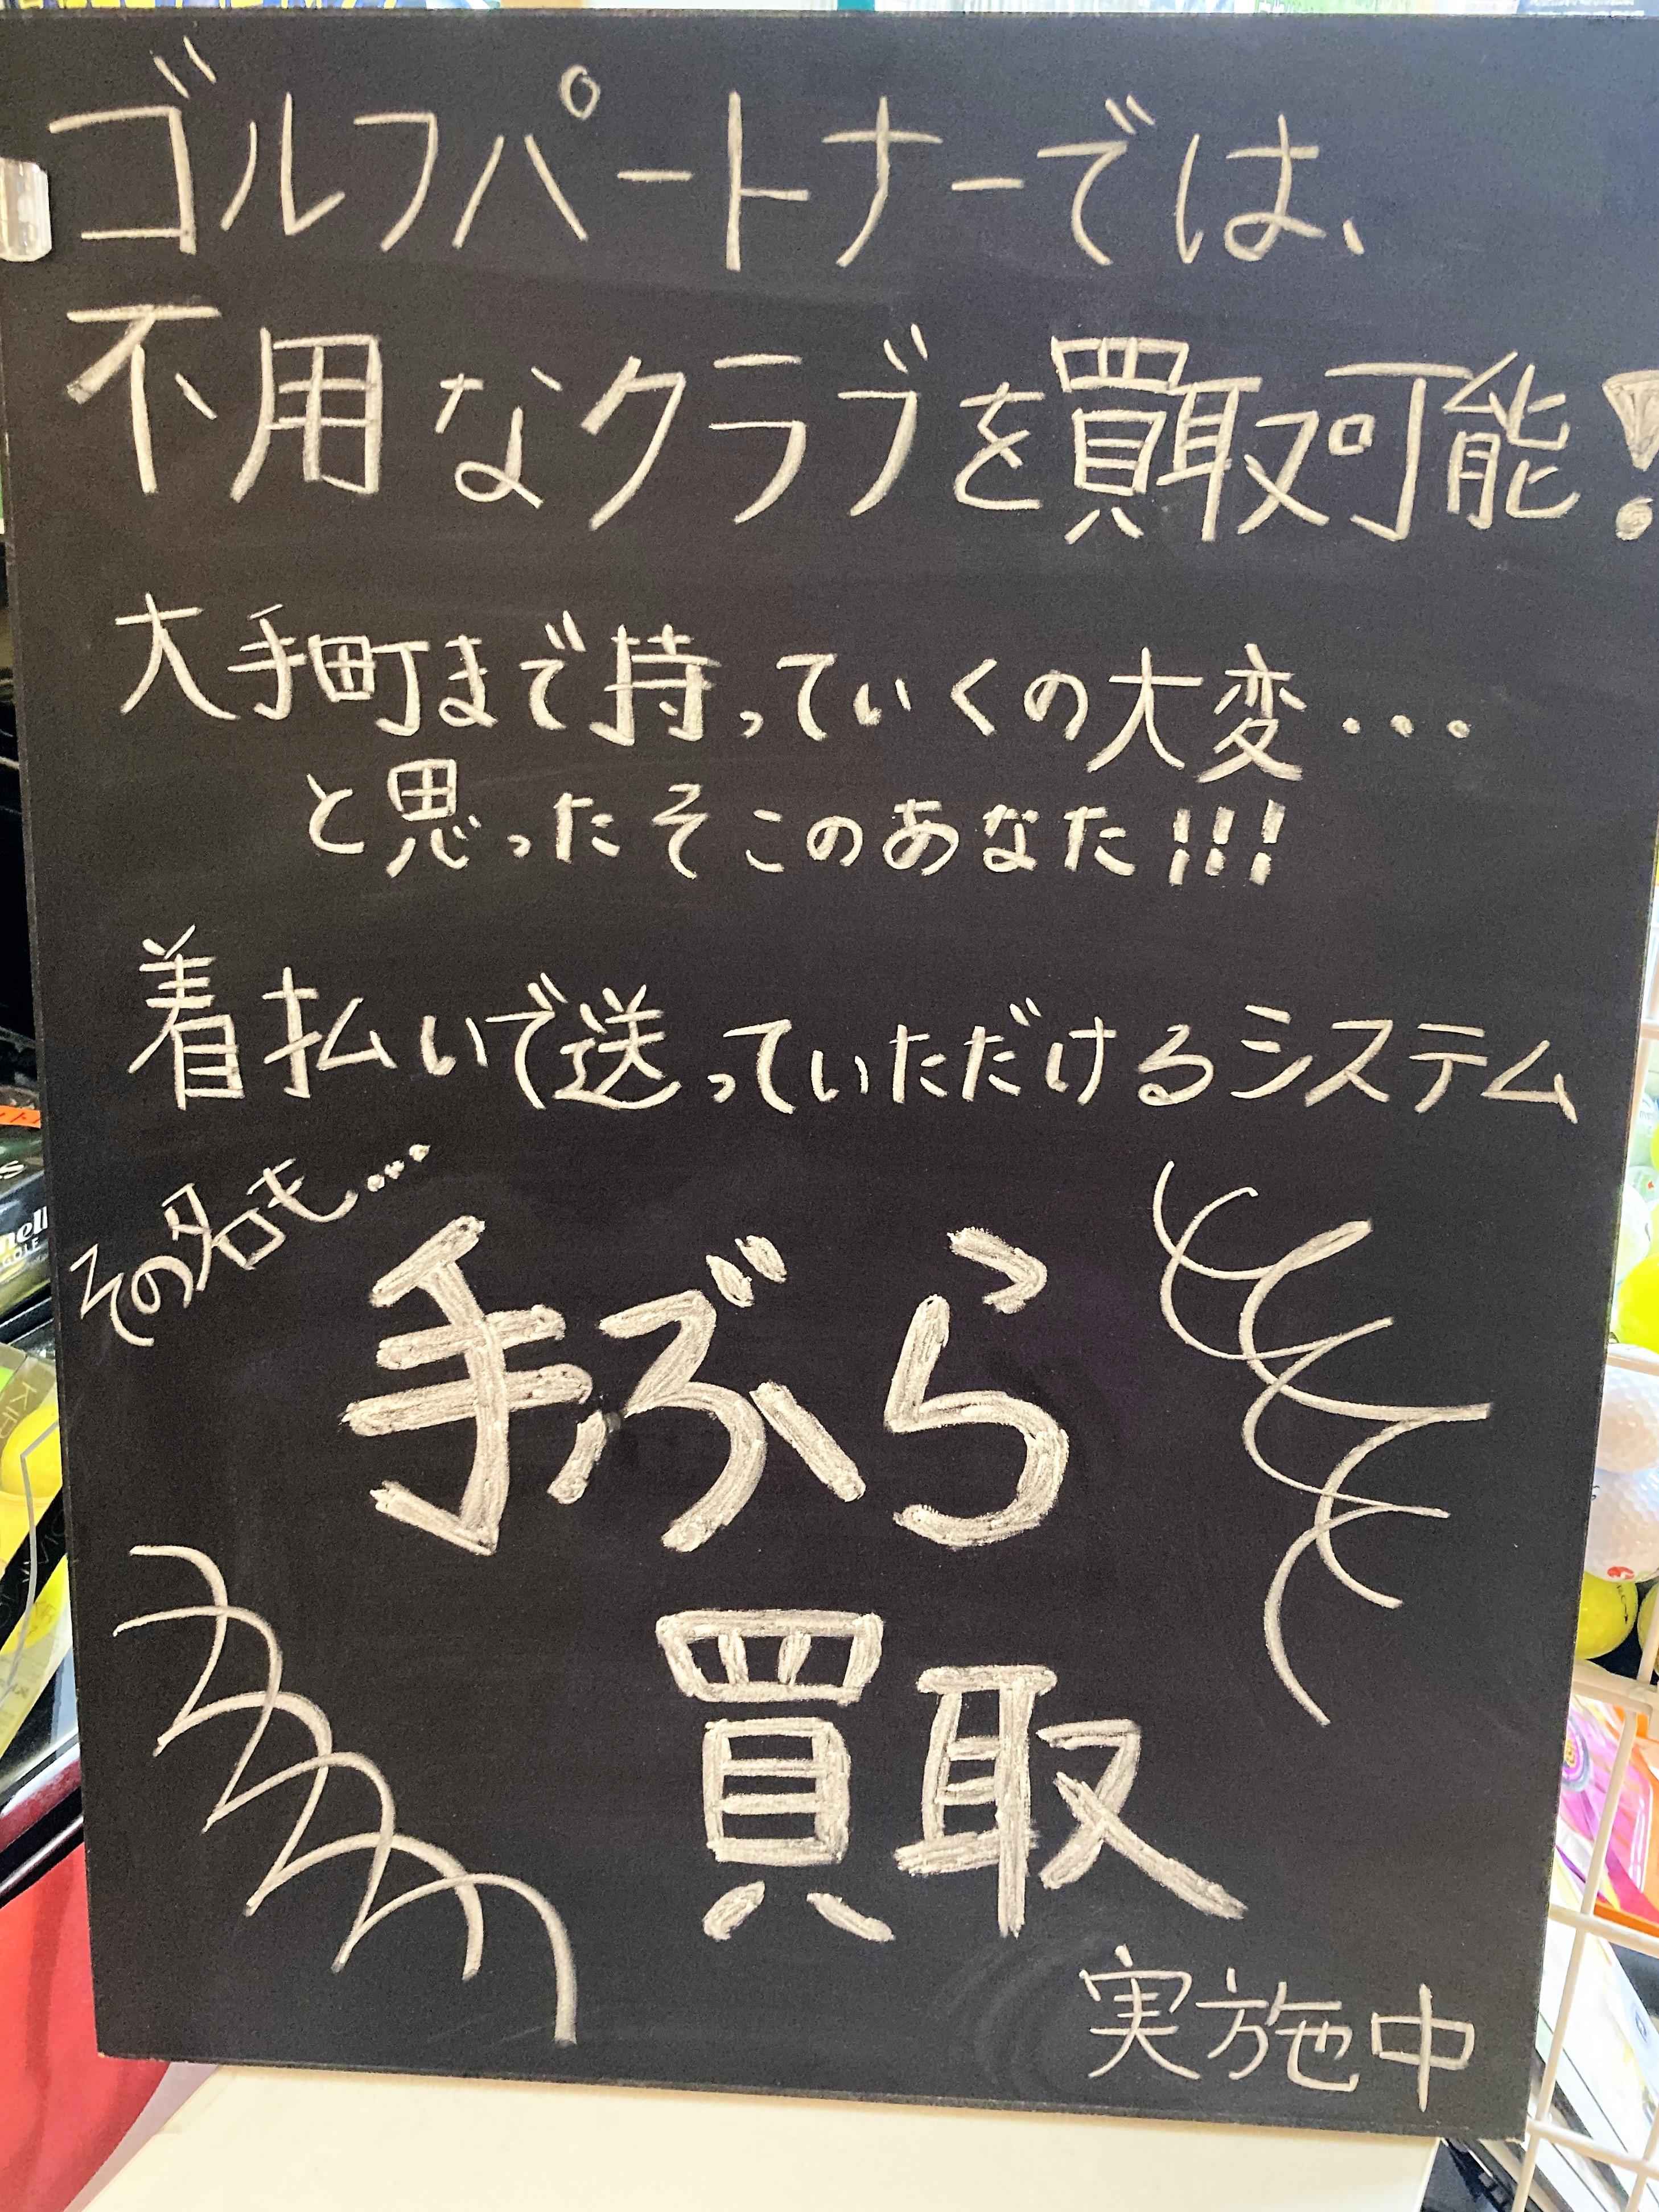 ゴルフパートナーでは、
不用なクラブを買取可能!
大手町まで持っていくの大変…
と思ったそこのあなた!!!
着払いで送っていただけるシステム
その名も…
手ぶら
買取
実施中